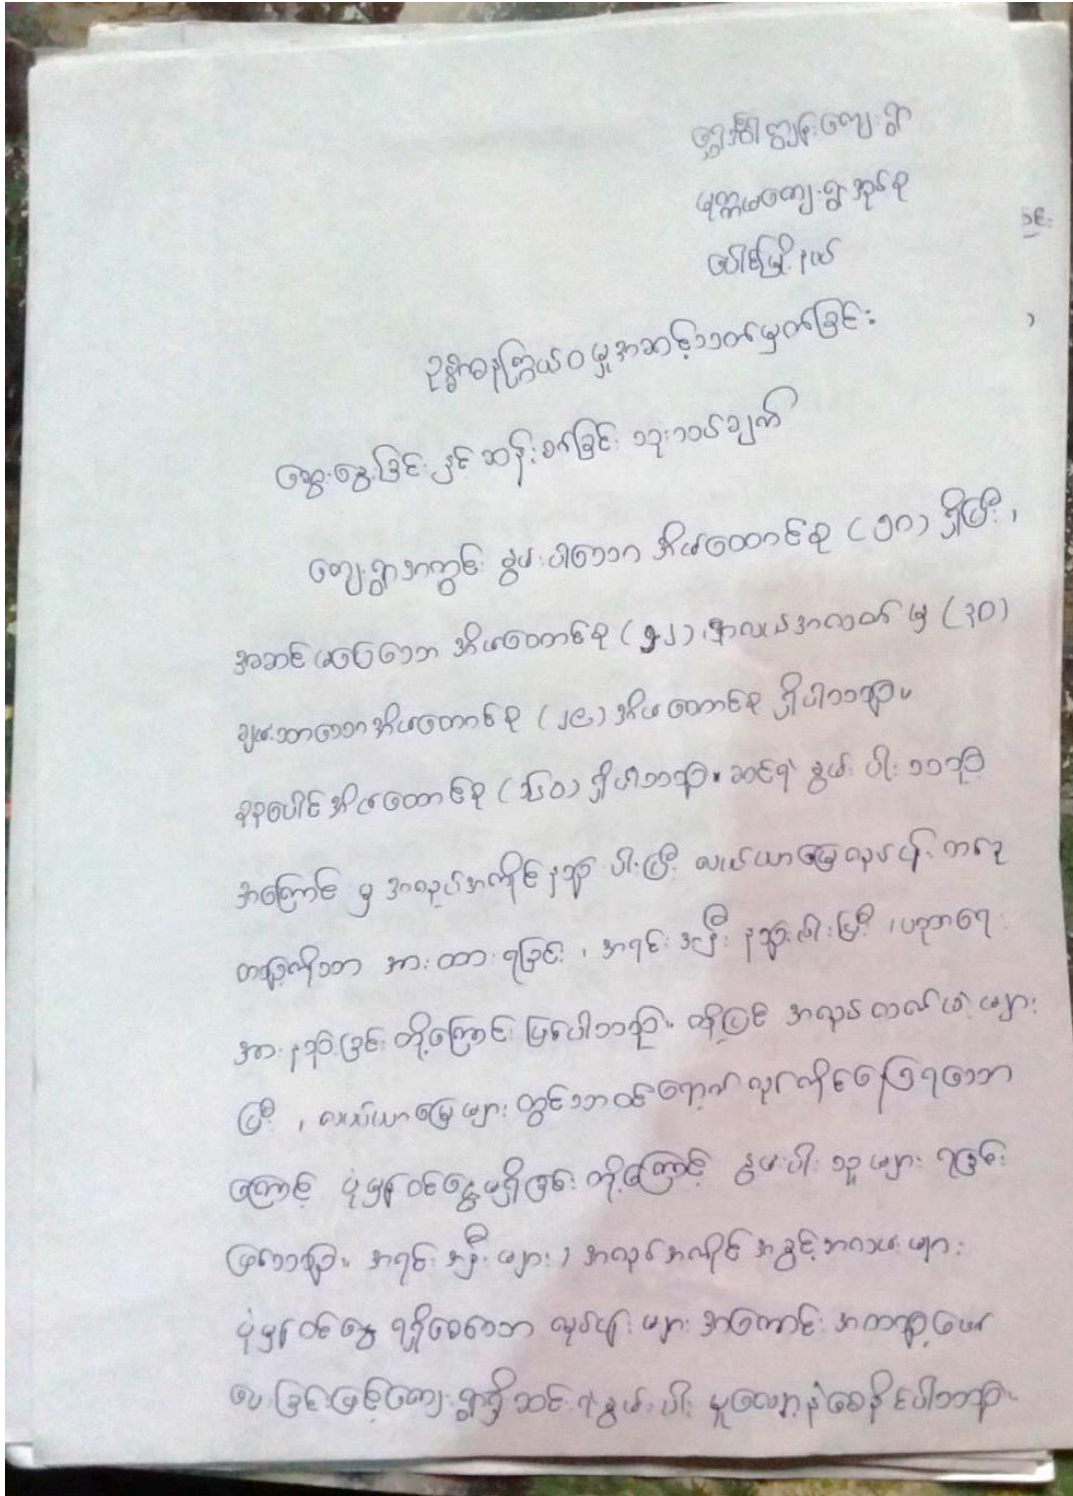 ကျွန်းကျေးရွာ
မုတ္တမကျေးရွာအုပ်စု
ပေါင်မြို့နယ်
ဥစ္စာဓနကြွယ်ဝမှုအဆင့်သတ်မှတ်ခြင်း
ဆွေးနွေးခြင်းနှင့် ဆန်းစစ်ခြင်း သုံးသပ်ချက်
ကျေးရွာအတွင်း နွမ်းပါးသော အိမ်ထောင်စု (၅၀) ရှိပြီး၊
အဆင်မပြေသော အိမ်ထောင်စု (၅၂)၊ လူလတ်တန်းစားမှ (၃၀)
ချမ်းသာသောအိမ်ထောင်စု (၂၉) အိမ်ထောင်စု ရှိပါသည်။
စုစုပေါင်းအိမ်ထောင်စု ရှိပါသည်။ ဆင်းရဲ နွမ်းပါးသည့်
အကြောင်းမှ အလုပ်အကိုင်နည်းပါးပြီး လယ်ယာမြေလုပ်ငန်း တစ်ခု
တည်းကိုသာ အားထားရခြင်း၊ အရင်းအနှီး နည်းပါးပြီး၊ ပညာရေး
အားနည်းခြင်းတို့ကြောင့် ဖြစ်ပါသည်။ ထို့ပြင် အလုပ်လက်မဲ့များ
ပြီး၊ လယ်ယာမြေများတွင်သာ ဝင်ရောက်လုပ်ကိုင်နေကြရသော
ကြောင့် ပုံမှန်ဝင်ငွေမရှိခြင်းတို့ကြောင့် နွမ်းပါးသူများ ရခြင်း
ဖြစ်သည်။ အရင်းအနှီးများ၊ အလုပ်အကိုင်အခွင့်အလမ်းများ
ပုံမှန်ဝင်ငွေ ရရှိစေသော လုပ်ငန်းများ အကောင်အထည်ဖော်
ပေးခြင်းဖြင့်ကျေးရွာရှိဆင်းရဲနွမ်းပါးမှုလျော့နည်းစေနိုင်ပါသည်။